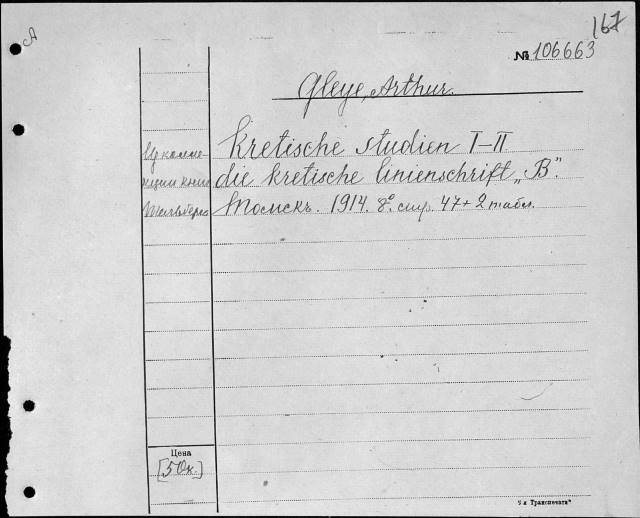 167
А
№ 106663
Gleye, Arthur.
Kretische studien I-II
die kretische linienschrift „B".
Томскъ. 1914. 8º. стр. 47 + 2 табл.
Из коллекции книг
Цена
[50к.]
5-я Транспечать"